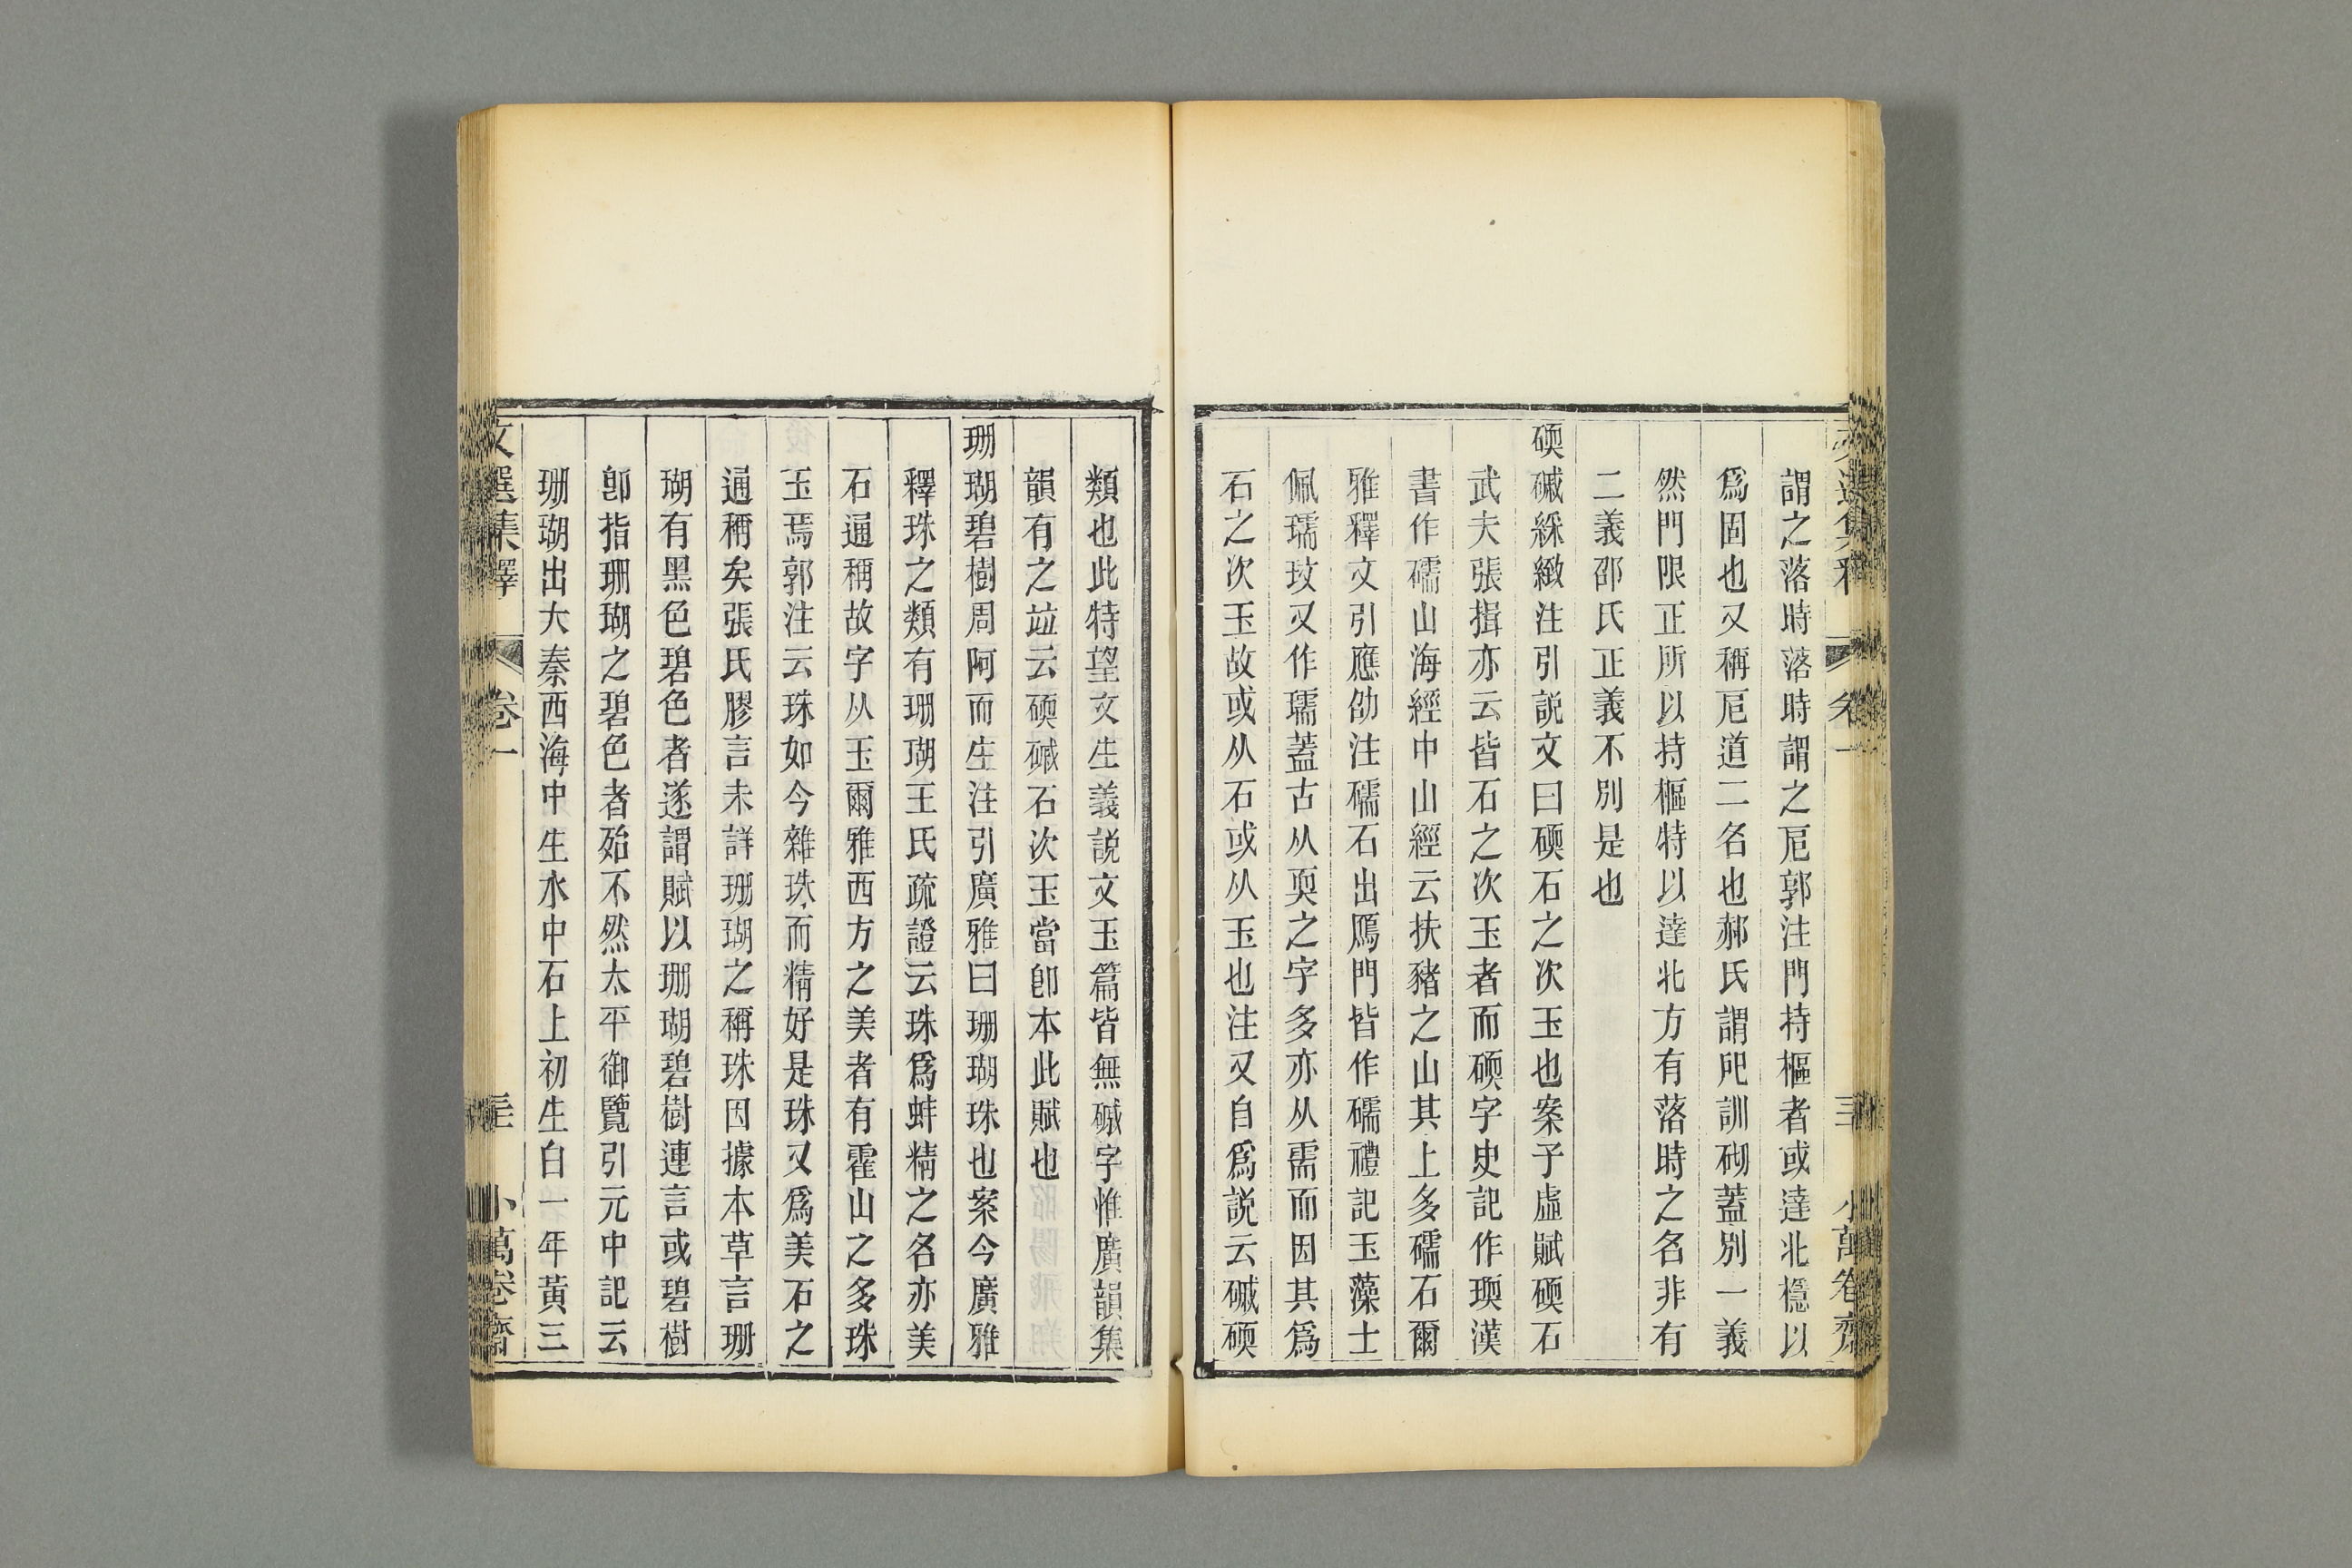 謂之落時落時謂之戹郭注門持樞者或達北檼以
爲固也又稱戹道二名也郝氏謂戺訓砌蓋別一義
然門限正所以持樞特以達北方有落時之名非有
二義邵氏正義不別是也
碝磩綵緻注引説文曰碝石之次玉也案子虛賦碝石
武夫張揖亦云皆石之次玉者而碝字史記作瓀漢
書作礝山海經中山經云扶豬之山其上多礝石爾
雅釋文引應劭注礝石出鴈門皆作礝禮記玉藻士
佩瓀玟又作瓀蓋古从耎之字多亦从需而因其爲
石之次玉故或从石或从玉也注又自爲説云磩碝
類也此特望文生義説文玉篇皆無磩字惟廣韻集
韻有之竝云碝磩石次玉當卽本此賦也
珊瑚碧樹周阿而生注引廣雅曰珊瑚珠也案今廣雅
釋珠之類有珊瑚王氏疏證云珠爲蚌精之名亦美
石通稱故字从玉爾雅西方之美者有霍山之多珠
玉焉郭注云珠如今雜珠而精好是珠又爲美石之
通稱矣張氏膠言未詳珊瑚之稱珠因據本草言珊
瑚有黑色碧色者遂謂賦以珊瑚碧樹連言或碧樹
卽指珊瑚之碧色者殆不然太平御覽引元中記云
珊瑚出大秦西海中生水中石上初生白一年黃三
文選集釋 卷一 小萬卷齋